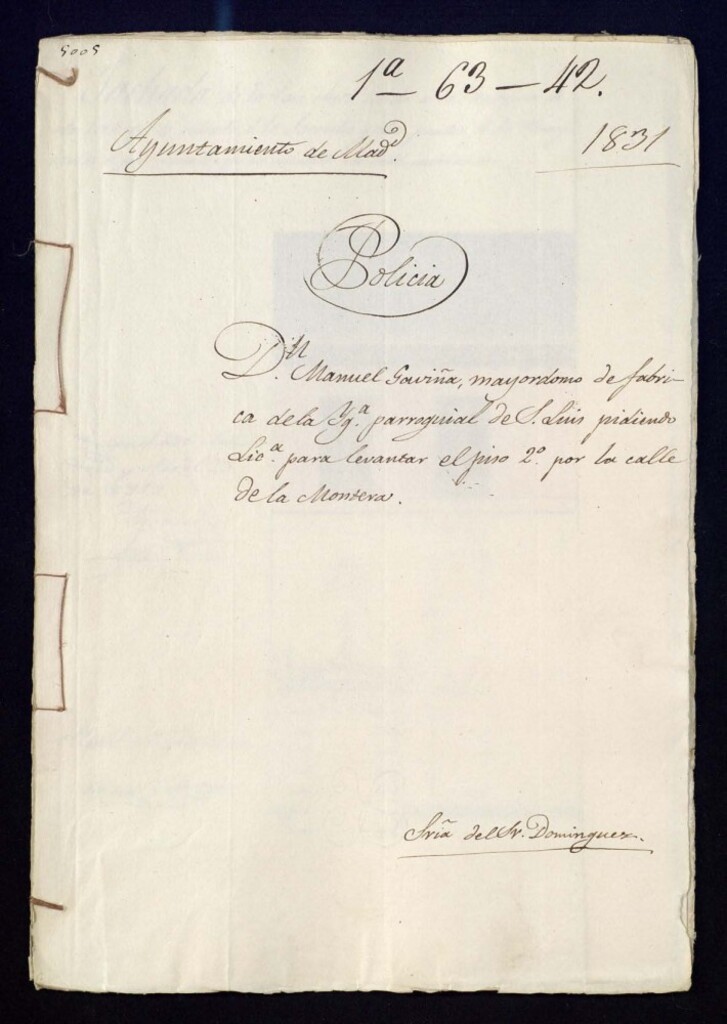 5005
1ª 63 - 42.
Ayuntamiento de Madᵈ.
1831
Policia
Dⁿ. Manuel Gaviña, mayordomo de fabri-
ca dela Ygª. parroquial de S. Luis pidiendo
Licª. para levantar el piso 2º. por la calle
de la Montera.
Sria del Sr. Dominguez.